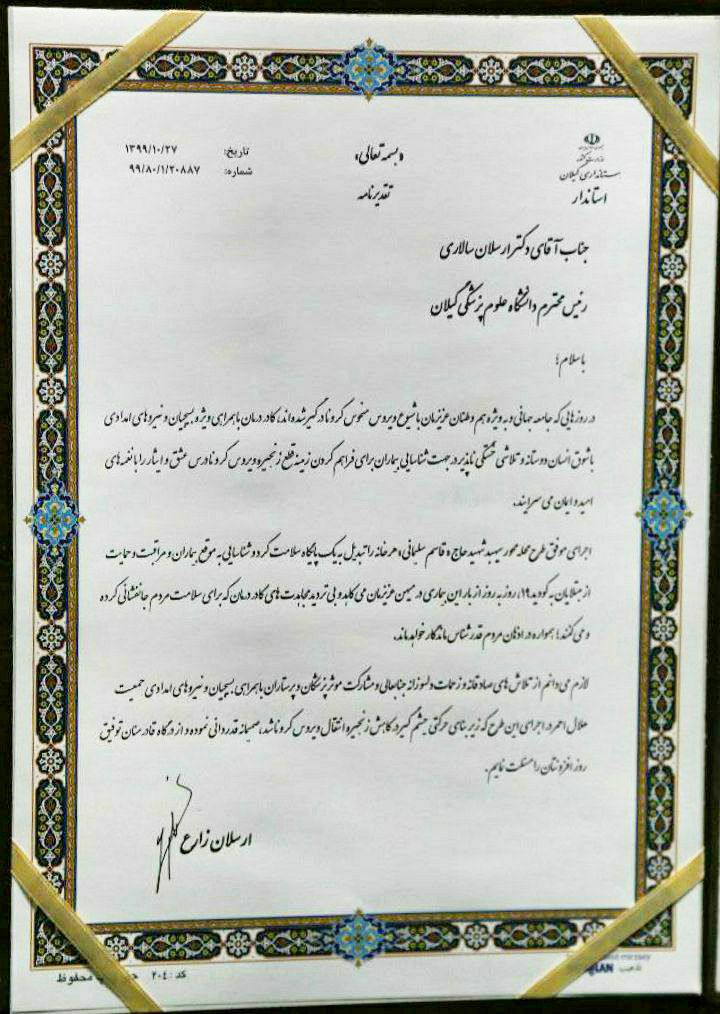 استانداری گیلان
استاندار
«بسمه تعالی»
تقدیرنامه
تاریخ: ۱۳۹۹/۱۰/۲۷
شماره: ۹۹/۸۰/۱/۲۰۸۸۷
جناب آقای دکتر ارسلان سالاری
رئیس محترم دانشگاه علوم پزشکی گیلان
با سلام؛
در روزهایی که جامعه جهانی و به ویژه هم وطنان عزیزمان با شیوع ویروس منحوس کرونا درگیر شده‌اند، کادر درمان با همراهی ویژه بسیجیان و نیروهای امدادی
با شوق انسان دوستانه و تلاشی خستگی ناپذیر در جهت شناسایی بیماران برای فراهم کردن زمینه قطع زنجیره ویروس کرونا درس عشق و ایثار را با نغمه های
امید و ایمان می سرایند.
اجرای موفق طرح محله محور سپهبد شهید حاج «قاسم سلیمانی» هر خانه را تبدیل به یک پایگاه سلامت کرد و شناسایی به موقع بیماران و مراقبت و حمایت
از مبتلایان به کووید ۱۹، روز به روز از بار این بیماری در میهن عزیزمان می کاهد و بی تردید مجاهدت های کادر درمان که برای سلامت مردم جانفشانی کرده
و می کنند؛ همواره در اذهان مردم قدرشناس ماندگار خواهد ماند.
لازم می دانم از تلاش های صادقانه و زحمات دلسوزانه جنابعالی و مشارکت موثر پزشکان و پرستاران با همراهی بسیجیان و نیروهای امدادی جمعیت
هلال احمر در اجرای این طرح که زیر بنای حرکتی چشم گیر در کاهش زنجیره انتقال ویروس کرونا شد، صمیمانه قدردانی نموده و از درگاه قادر منان توفیق
روز افزونتان را مسئلت نمایم.
ارسلان زارع
کد: ۲۰۴
محفوظ
تذهیب
LAN